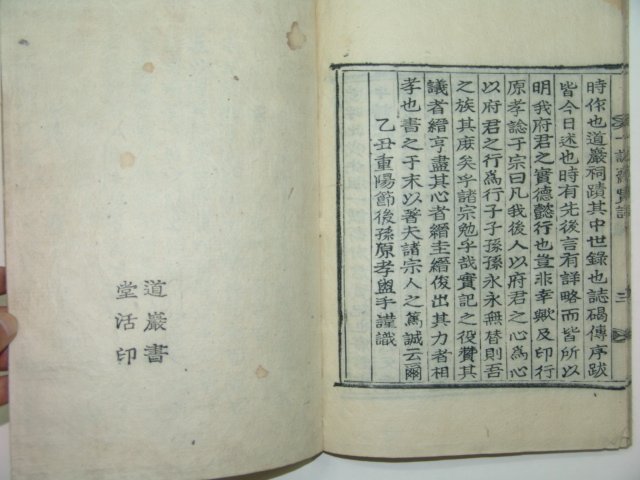 時作也道巖祠蹟其中世錄也誌碣傳序跋
皆今日述也時有先後言有詳略而皆所以
明我府君之實德懿行也豈非幸歟及印行
原孝諗于宗曰凡我後人以府君之心爲心
以府君之行爲行子子孫孫永永無替則吾
之族其庶矣乎諸宗勉乎哉實記之役賛其
議者縉亨盡其心者縉圭縉俊出其力者相
孝也書之于末以著夫諸宗人之篤誠云爾
乙丑重陽節後孫原孝盥手謹識
道巖書
堂活印